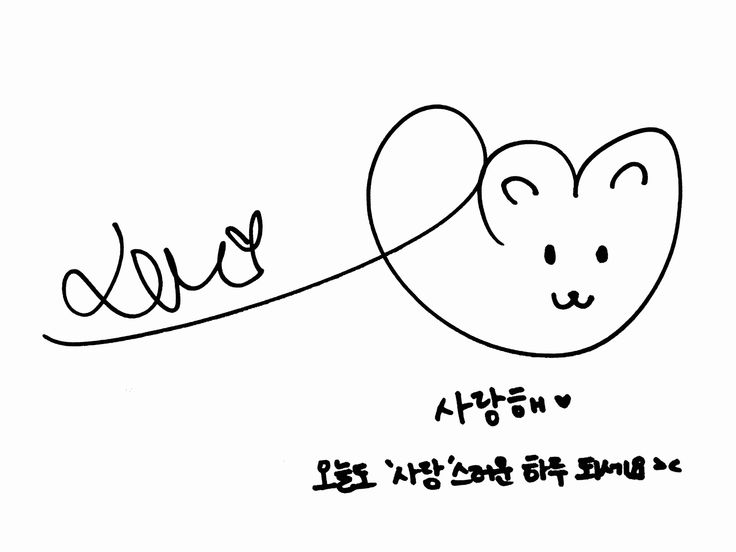 사랑해♥
오늘도 '사랑'스러운 하루 되세요 ><